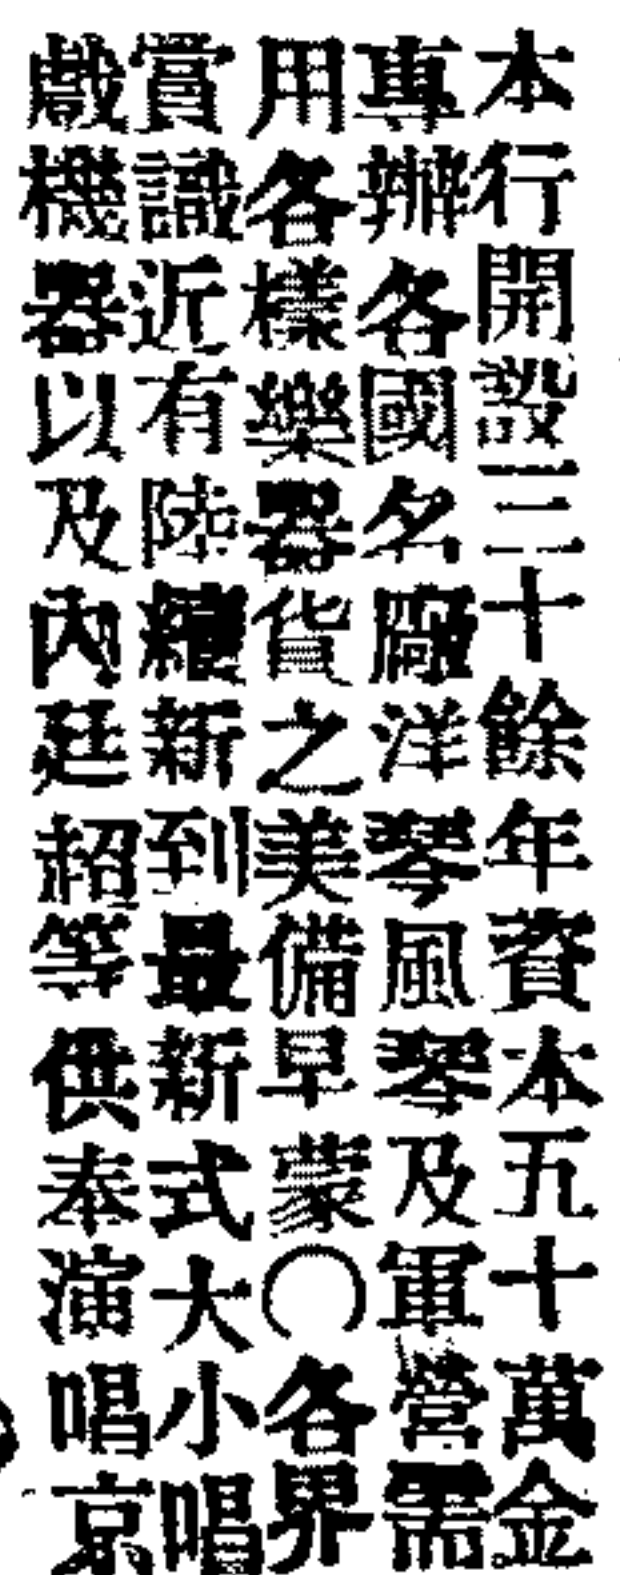 本行開設三十餘年資本五十萬金
專辦各國名廠洋琴風琴及軍營需
用各樣樂器貨之美備早蒙〇各界
賞識近有陸續新到最新式大小唱
戲機器以及內廷超等供奉演唱京